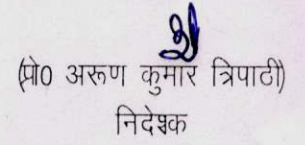 (प्रो0 अरूण कुमार त्रिपाठी)
निदेश्क